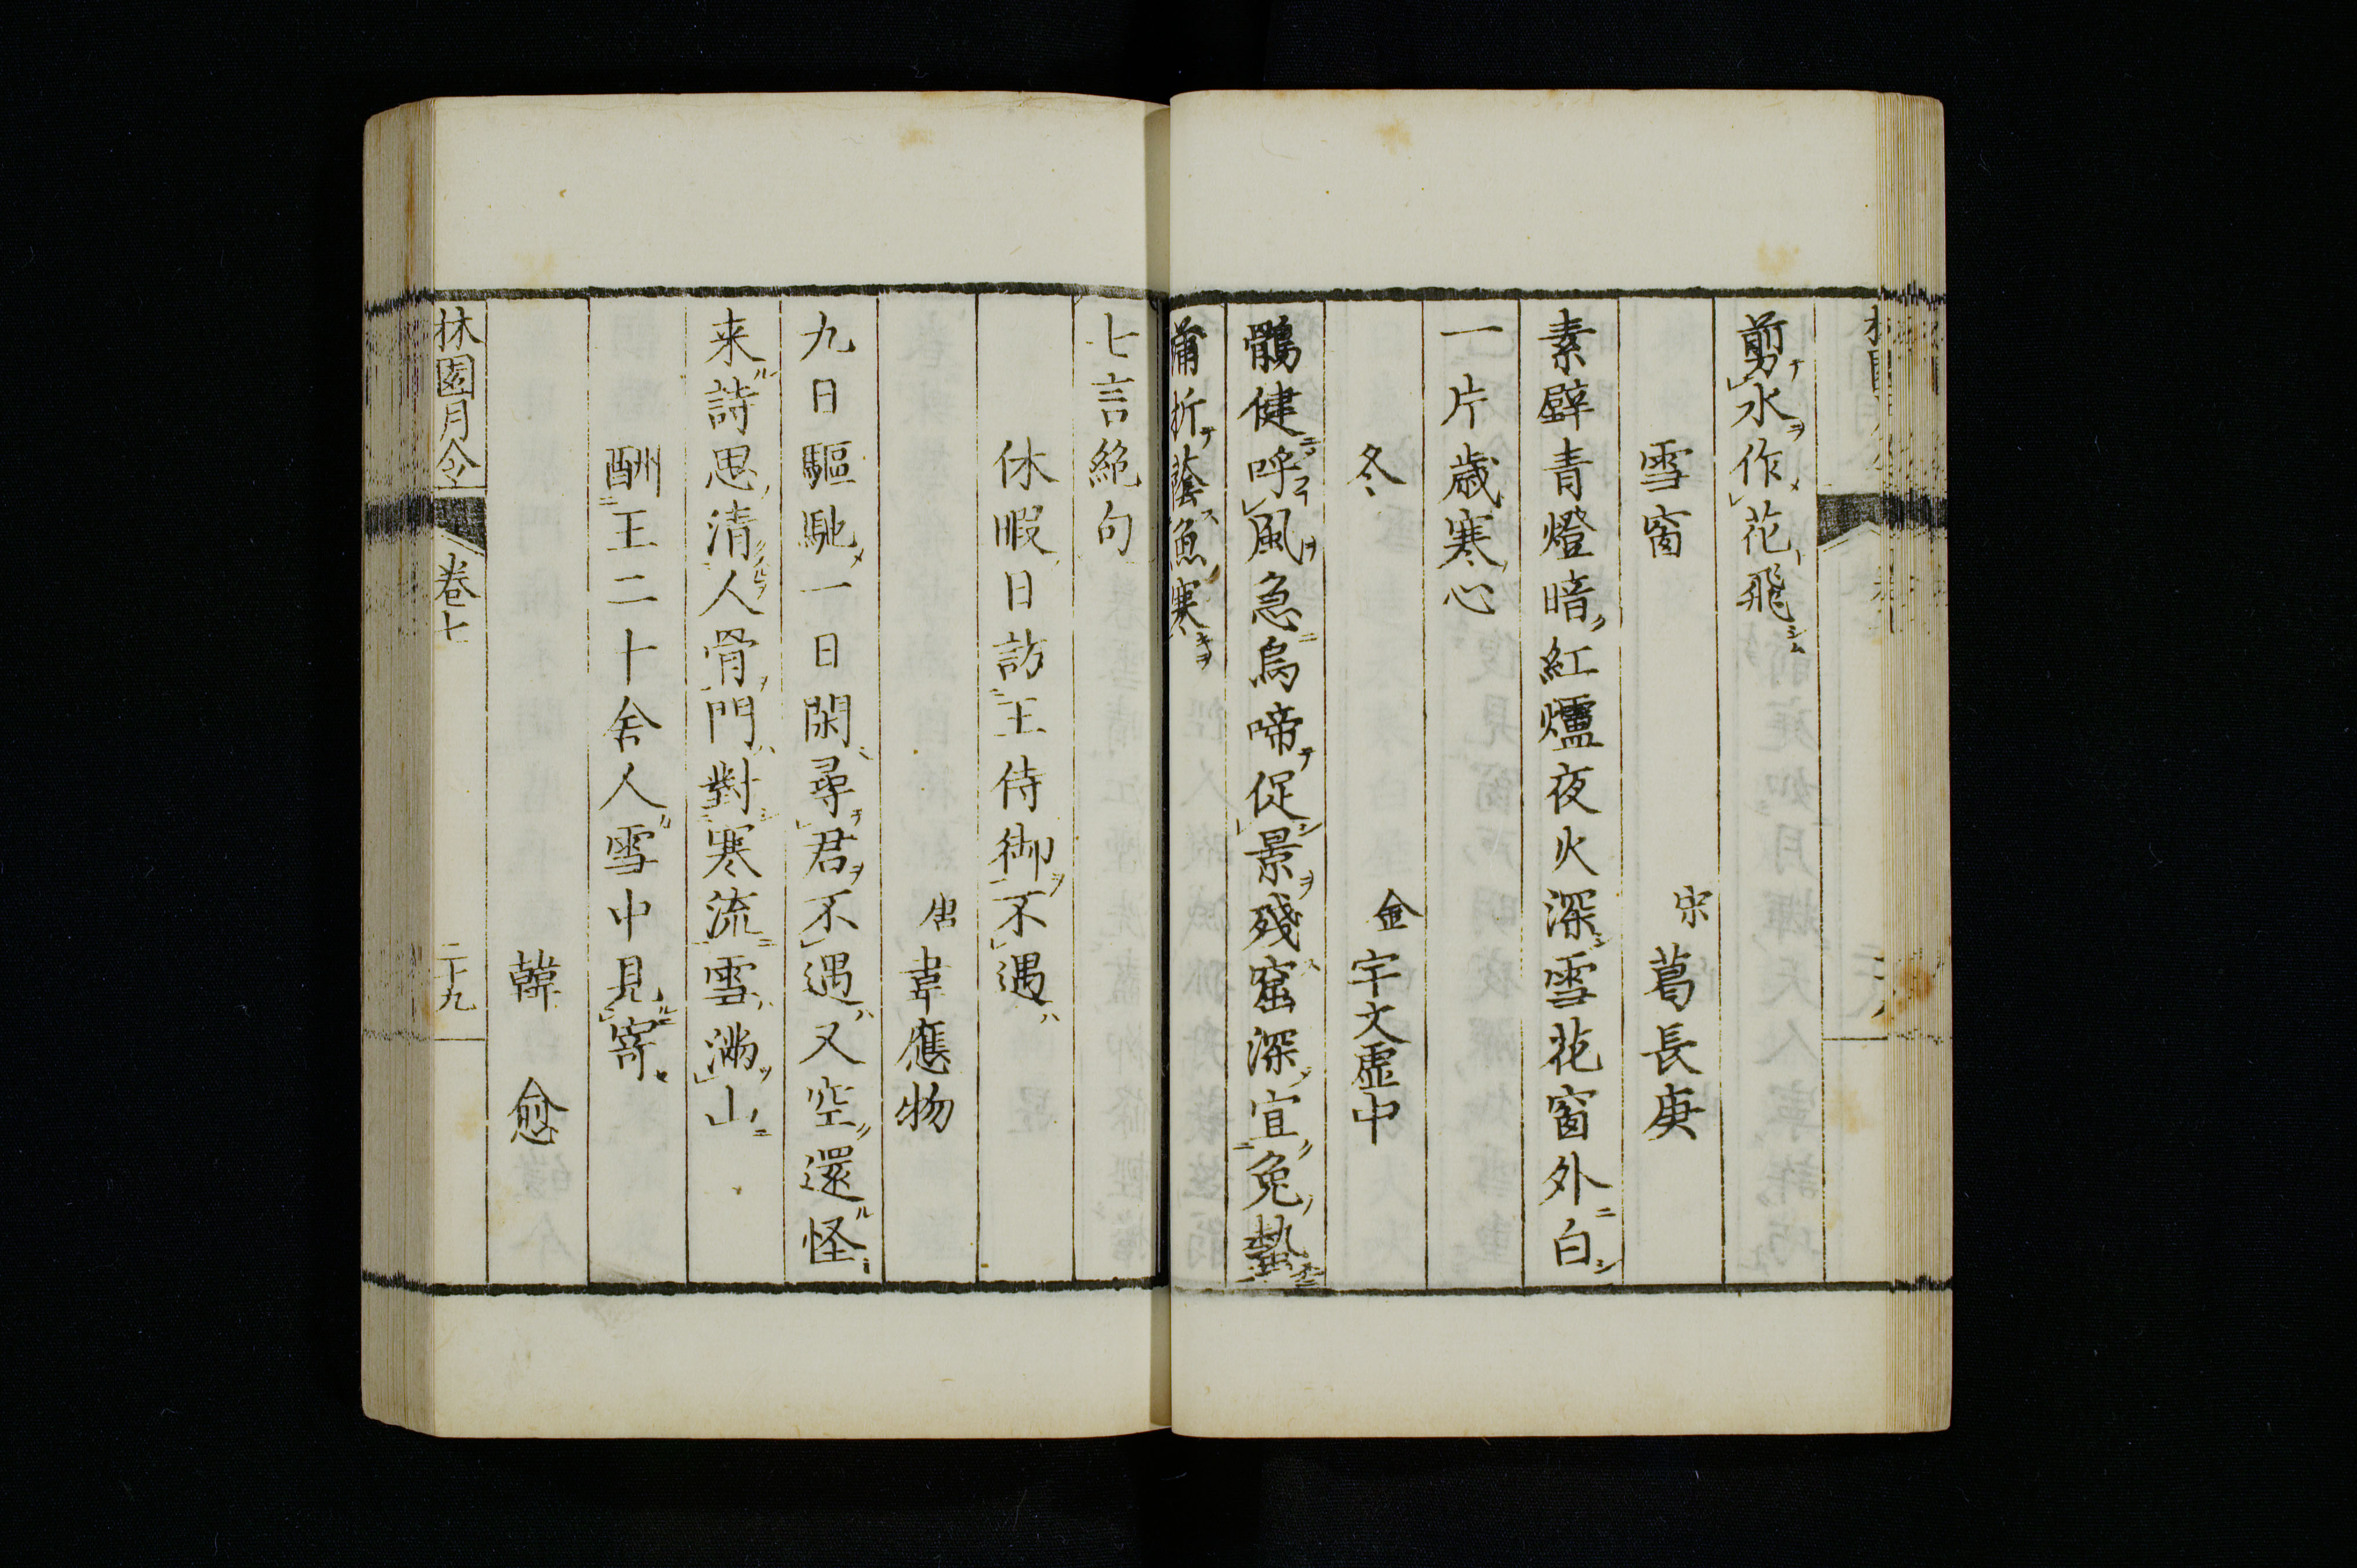 剪水作花飛
雪窗
宋 葛長庚
素壁青燈暗紅爐夜火深雪花窗外白
一片歳寒心
冬
金 宇文虛中
鶻健呼風急烏啼促景殘窟深宜兔蟄
蒲折蔭魚寒
七言絶句
休暇日訪王侍御不遇
唐 韋應物
九日驅馳一日閑尋君不遇又空還怪
来詩思清人骨門對寒流雪滿山
酬王二十舍人雪中見寄
韓愈
林園月令 卷七 二十九